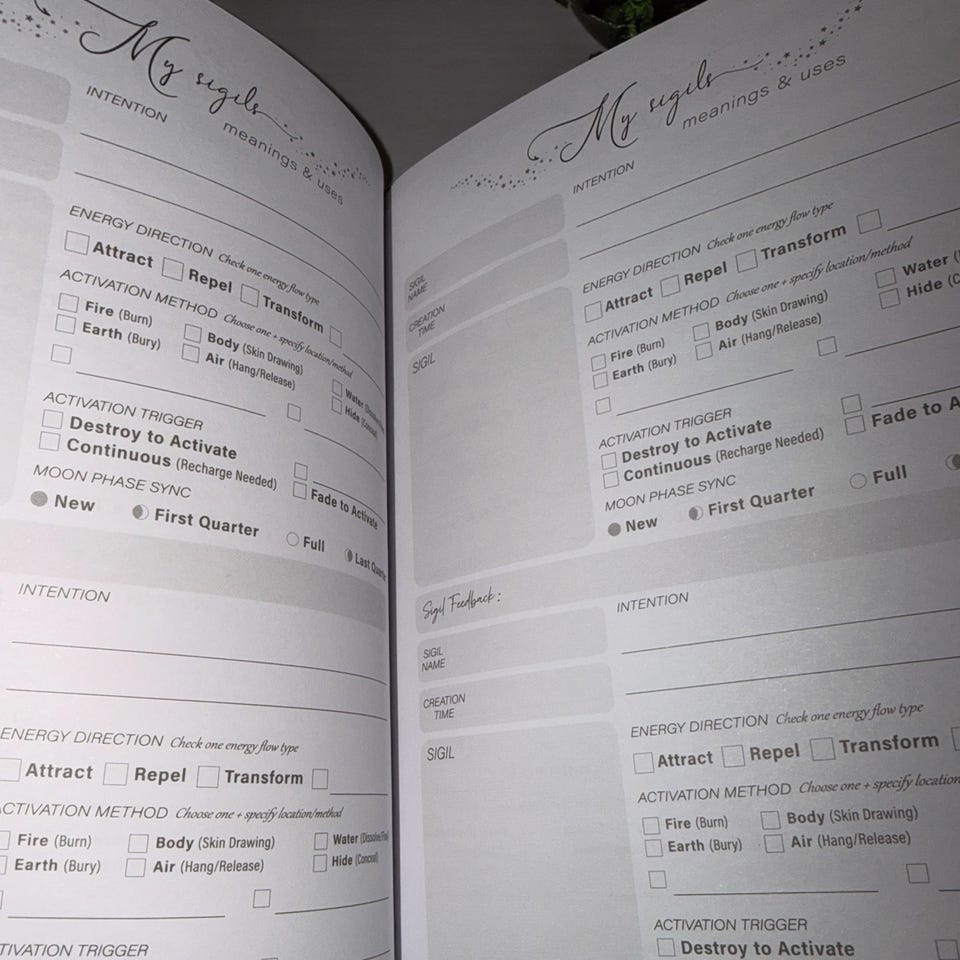 My sigils
meanings & uses
INTENTION
ENERGY DIRECTION Check one energy flow type
Attract Repel Transform
ACTIVATION METHOD Choose one + specify location/method
Fire (Burn) Body (Skin Drawing) Water (Dissolve/
Earth (Bury) Air (Hang/Release) Hide (Conceal)
ACTIVATION TRIGGER
Destroy to Activate
Continuous (Recharge Needed) Fade to Activate
MOON PHASE SYNC
New First Quarter Full Last Quarter
INTENTION
ENERGY DIRECTION Check one energy flow type
Attract Repel Transform
ACTIVATION METHOD Choose one + specify location/method
Fire (Burn) Body (Skin Drawing) Water (Dissolve/
Earth (Bury) Air (Hang/Release) Hide (Conceal)
TIVATION TRIGGER
My sigils
meanings & uses
SIGIL
NAME
INTENTION
CREATION
TIME
SIGIL
ENERGY DIRECTION Check one energy flow type
Attract Repel Transform
ACTIVATION METHOD Choose one + specify location/method
Fire (Burn) Body (Skin Drawing) Water (
Earth (Bury) Air (Hang/Release) Hide (C
ACTIVATION TRIGGER
Destroy to Activate
Continuous (Recharge Needed) Fade to A
MOON PHASE SYNC
New First Quarter Full
Sigil Feedback:
SIGIL
NAME
INTENTION
CREATION
TIME
SIGIL
ENERGY DIRECTION Check one energy flow type
Attract Repel Transform
ACTIVATION METHOD Choose one + specify location
Fire (Burn) Body (Skin Drawing)
Earth (Bury) Air (Hang/Release)
ACTIVATION TRIGGER
Destroy to Activate